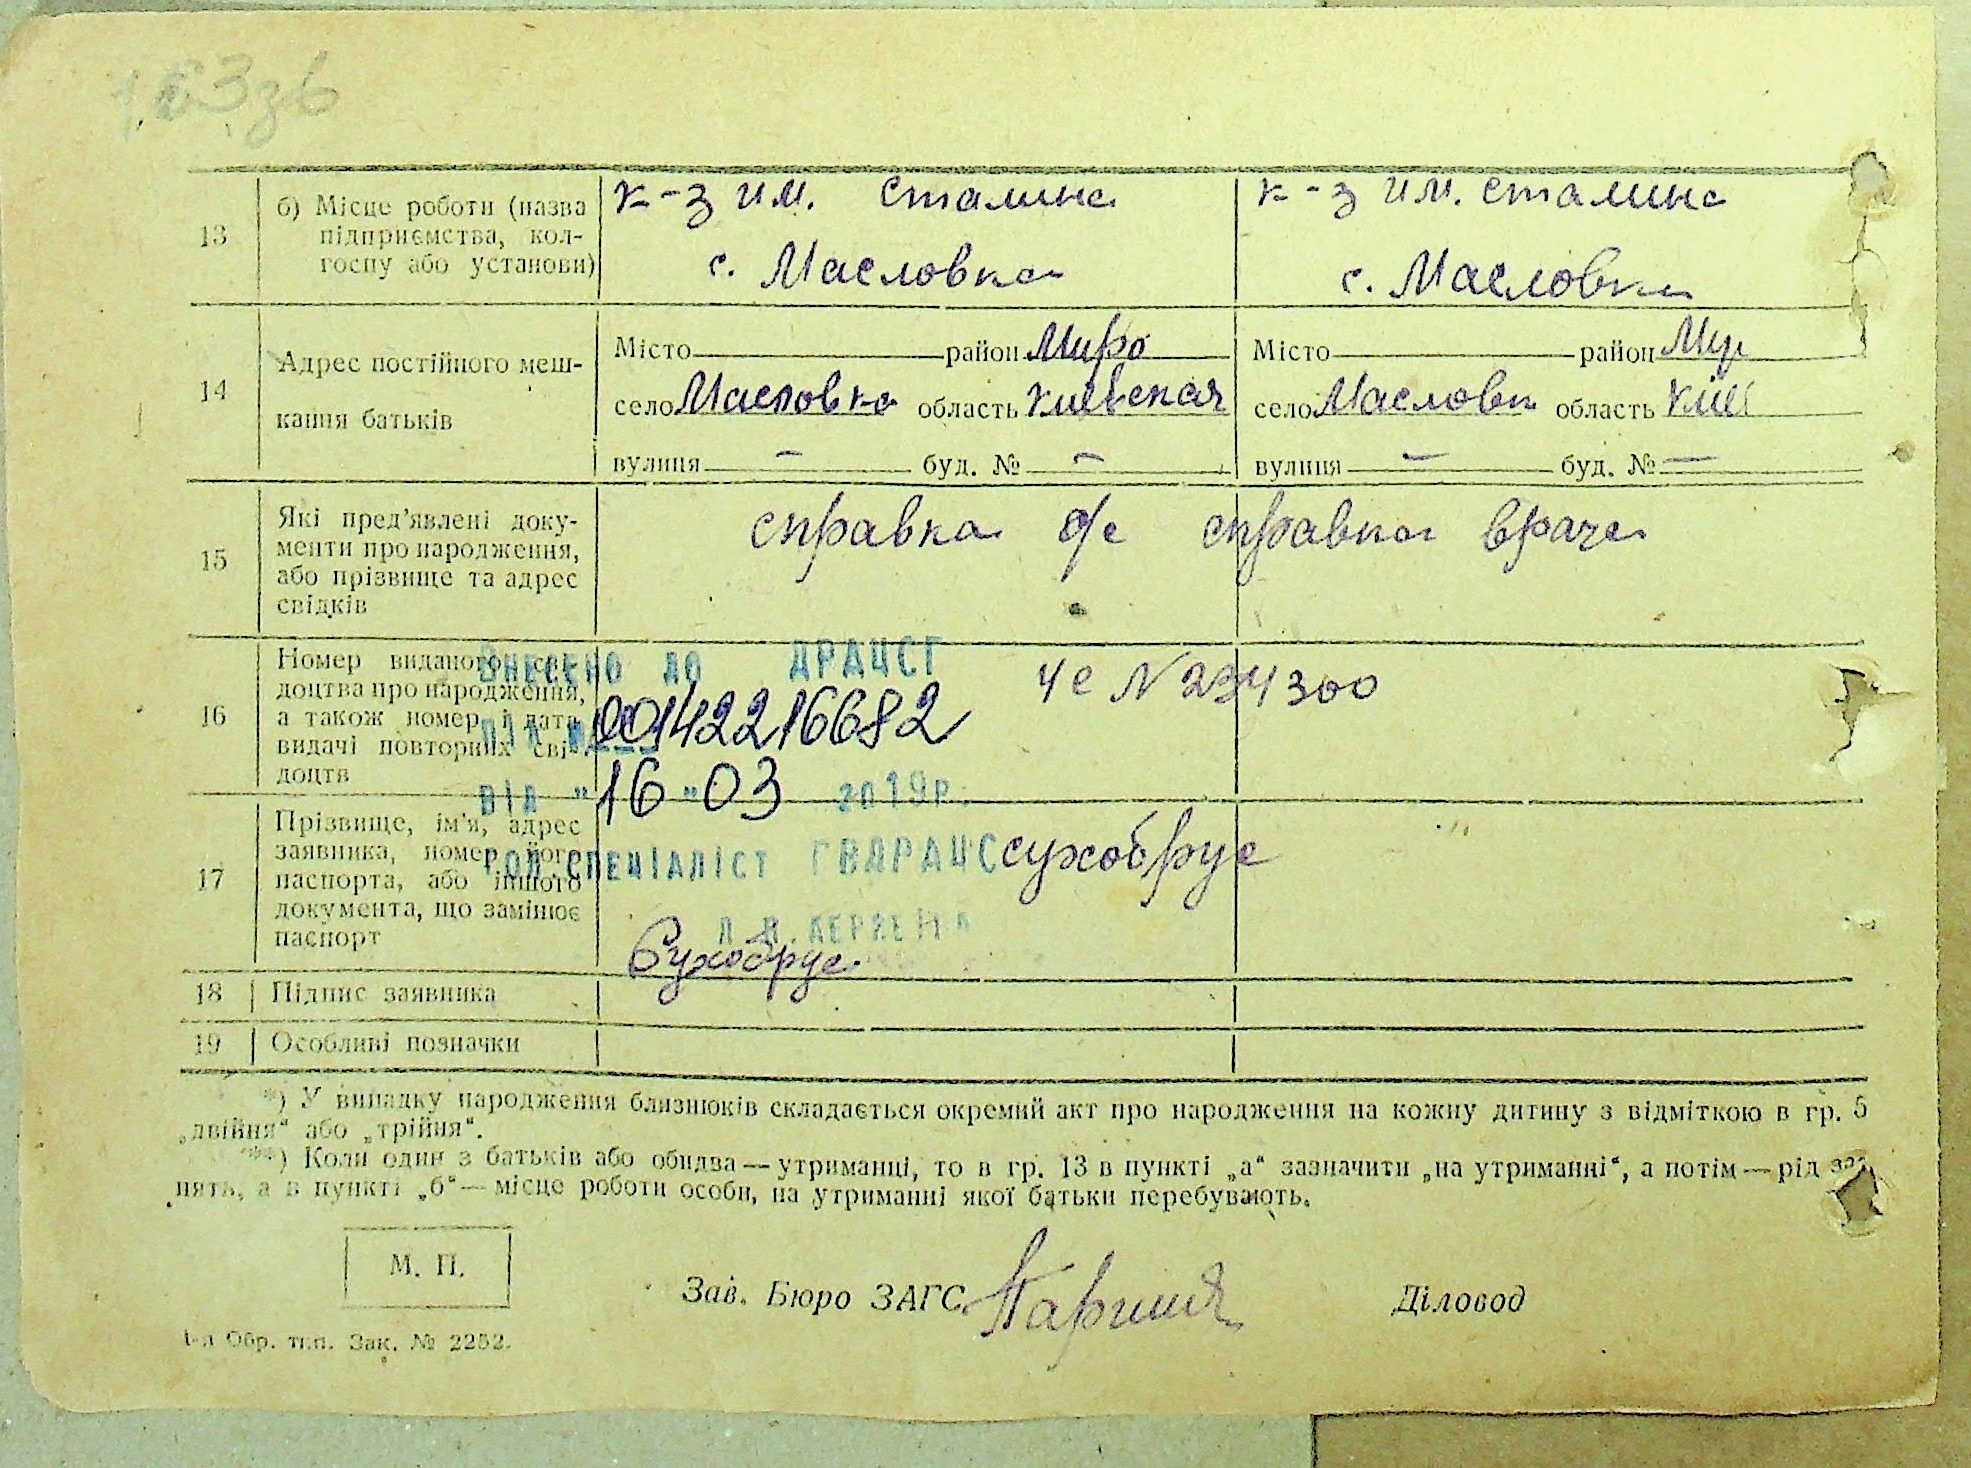 163зв
13
б) Місце роботи (назва
підприємства, кол-
госпу або установи)
к-з им. Сталина
с. Масловка
к-з им. Сталина
с. Масловка
14
Адрес постійного меш-
кання батьків
Місто район Миро
село Масловка область Киевская
вулиця — буд. № —
Місто район Мир
село Масловк область Киев
вулиця — буд. № —
15
Які пред'явлені доку-
менти про народження,
або прізвище та адрес
свідків
справка с/с справка врача
16
Номер виданого сві-
доцтва про народження,
а також номер і дата
видачі повторних сві-
доцтв
ЧЕ N 234300
ВНЕСЕНО ДО ДРАЦСГ
00142216682
ВІД "16" 03 2019р.
ГОЛ.СПЕЦІАЛІСТ ГВДРАЦС
17
Прізвище, ім'я, адрес
заявника, номер його
паспорта, або іншого
документа, що замінює
паспорт
Сухобрус
Сухобрус
18
Підпис заявника
19
Особливі позначки
*) У випадку народження близнюків складається окремий акт про народження на кожну дитину з відміткою в гр. 5
„двійня“ або „трійня“.
**) Коли один з батьків або обидва — утриманці, то в гр. 13 в пункті „а“ зазначити „на утриманні“, а потім — рід за-
нять, а в пункті „б“ — місце роботи особи, на утриманні якої батьки перебувають.
М. П.
Зав. Бюро ЗАГС
Діловод
1-а Обр. тип. Зак. № 2252.